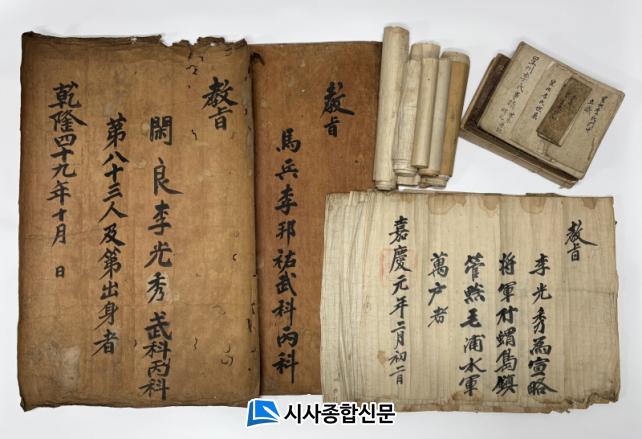 敎旨
閑良李光秀武科丙科
第八十三人及第出身者
乾隆四十九年十月 日
敎旨
馬兵李邦祐武科丙科
敎旨
李光秀爲宣略
將軍行蝟島鎭
管黔毛浦水軍
萬户者
嘉慶元年二月初二日
星州李氏
시사종합신문